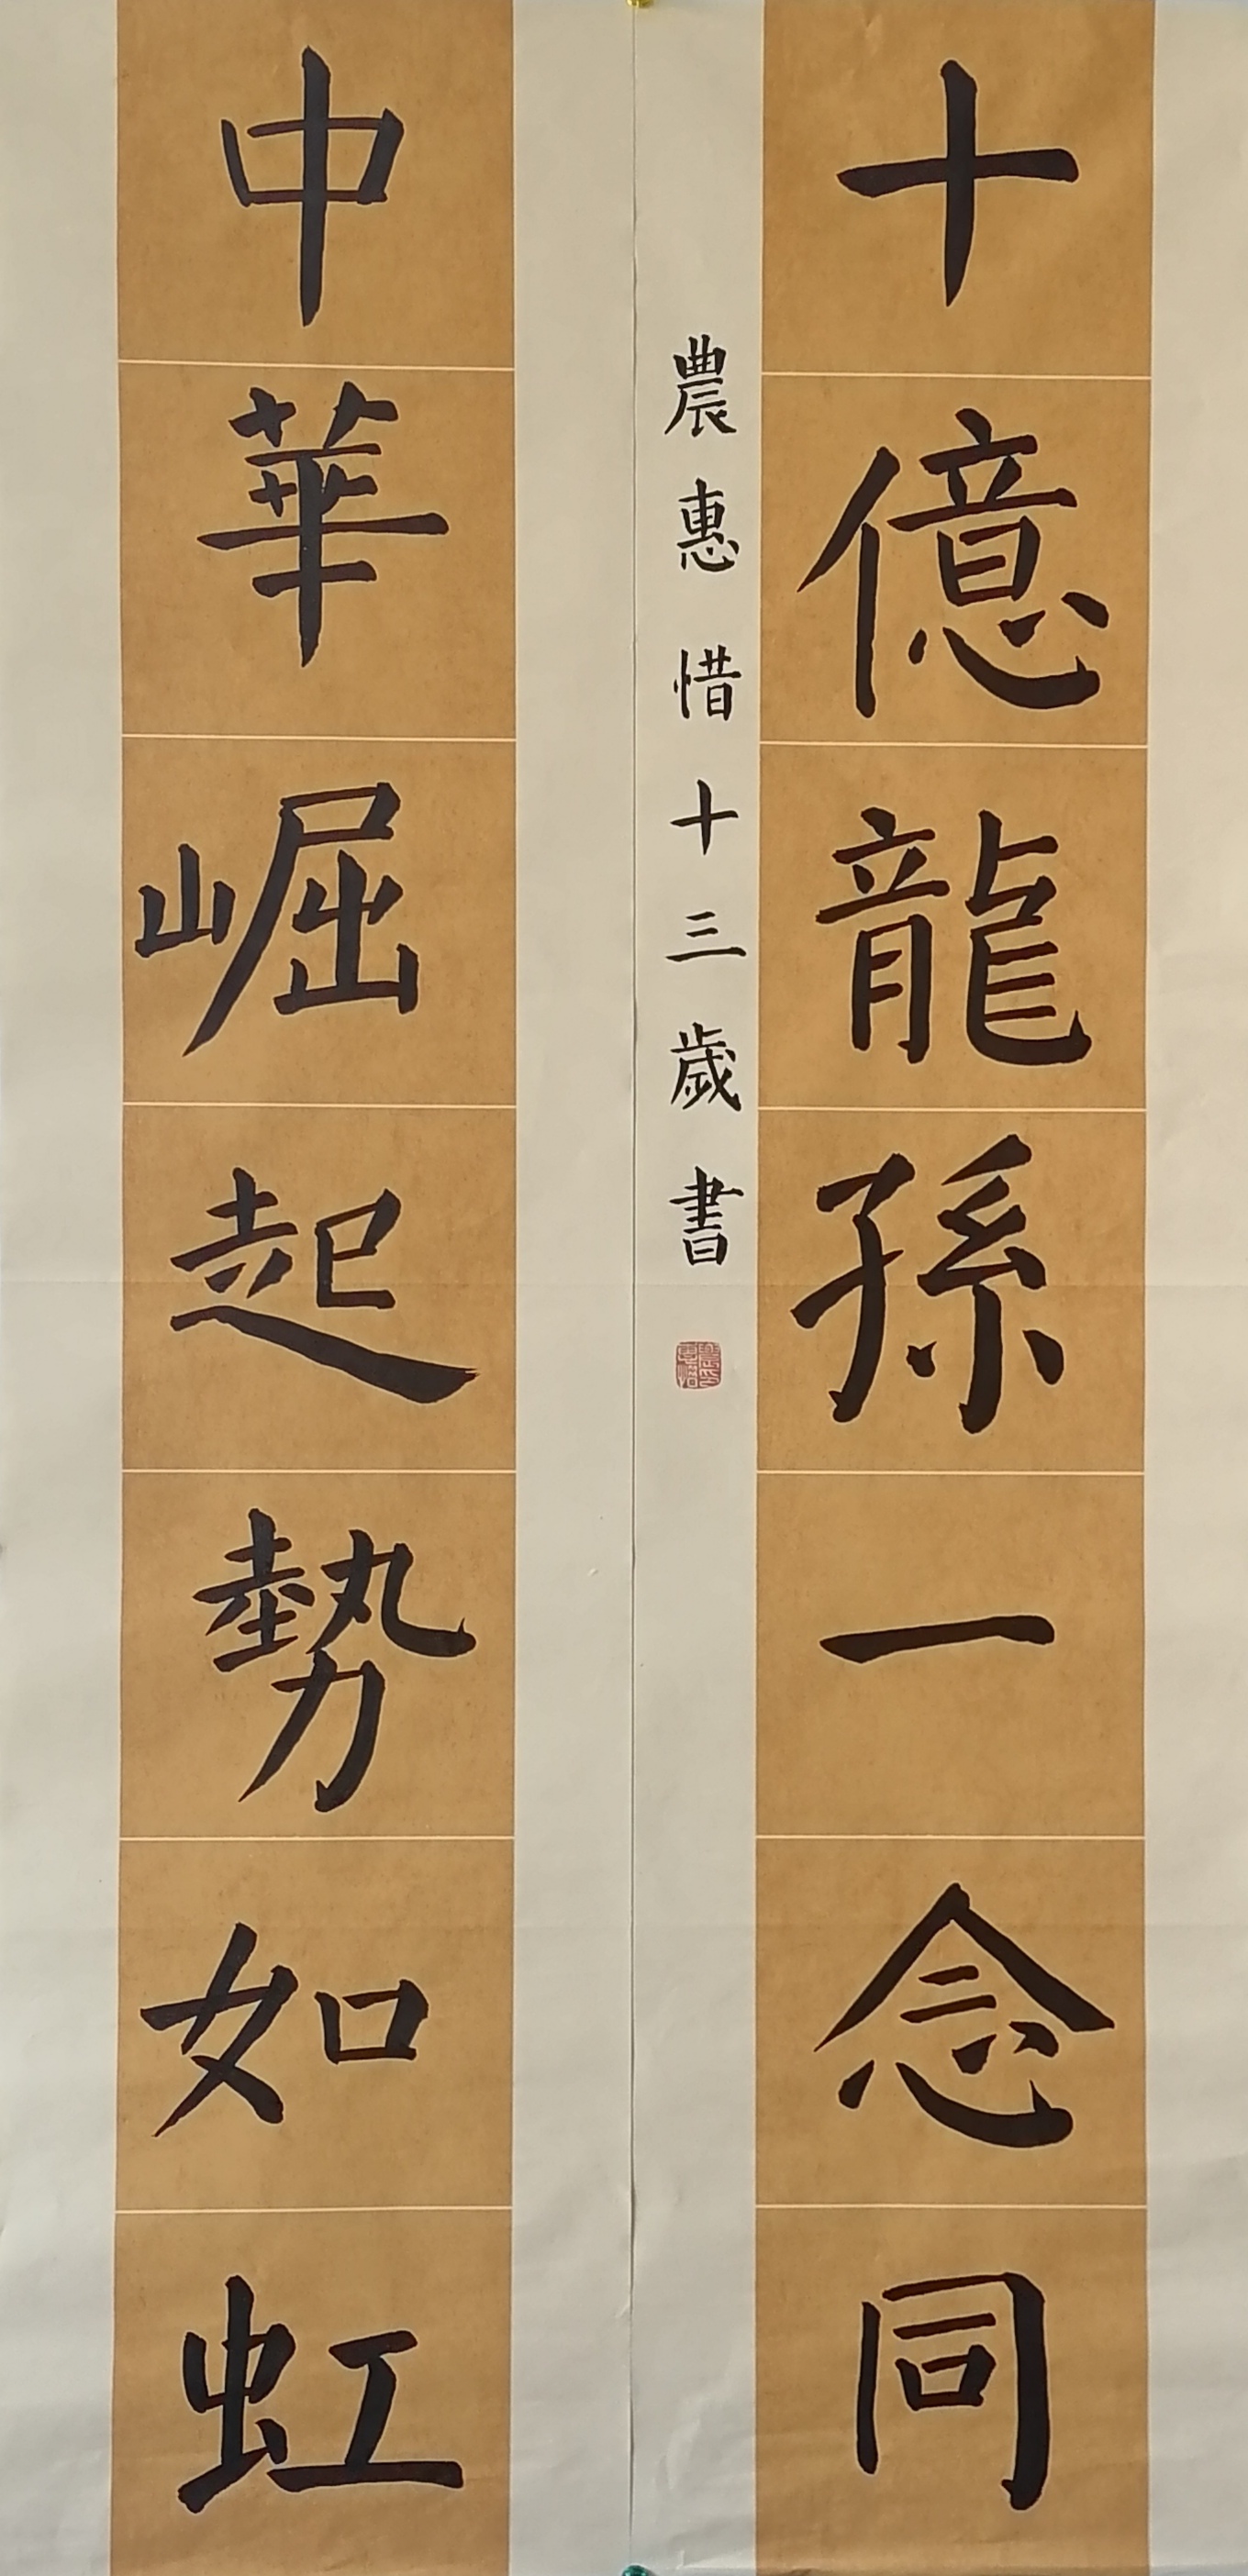 十億龍孫一念同
中華崛起勢如虹
農惠惜十三歲書